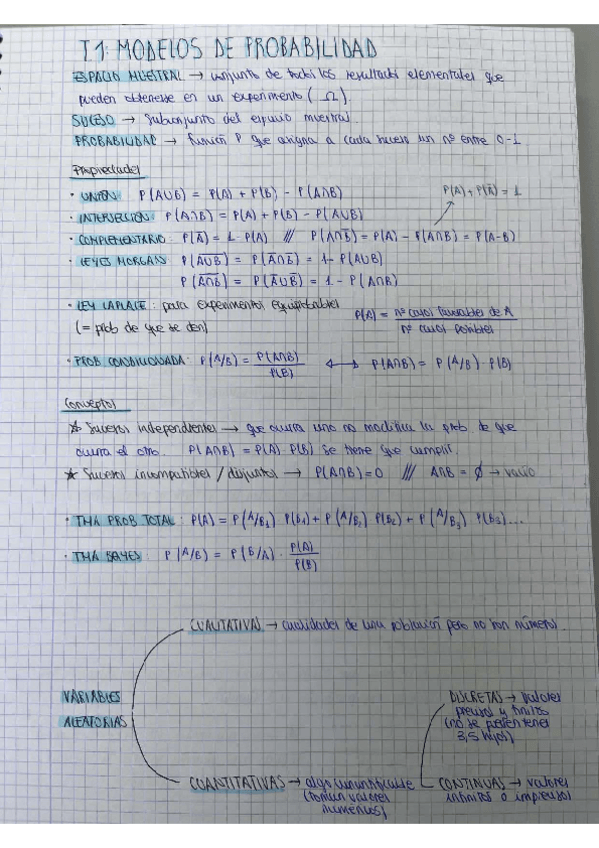 T.1: MODELOS DE PROBABILIDAD
ESPACIO MUESTRAL → conjunto de todos los resultados elementales que
pueden obtenerse en un experimento ( Ω ).
SUCESO → Subconjunto del espacio muestral
PROBABILIDAD → función P que asigna a cada suceso un nº entre 0-1
Propiedades
· UNIÓN: P(A∪B) = P(A) + P(B) - P(A∩B)
P(A) + P(A̅) = 1
· INTERSECCIÓN: P(A∩B) = P(A) + P(B) - P(A∪B)
· COMPLEMENTARIO: P(A̅) = 1 - P(A) /// P(A∩B̅) = P(A) - P(A∩B) = P(A-B)
· LEYES MORGAN: P(A̅∪̅B̅) = P(A̅∩B̅) = 1 - P(A∪B)
P(A̅∩̅B̅) = P(A̅∪B̅) = 1 - P(A∩B)
· LEY LAPLACE: para experimentos equiprobables
(= prob de que se den)
P(A) = nº casos favorables de A / nº casos posibles
· PROB CONDICIONADA: P(A/B) = P(A∩B) / P(B) ↔ P(A∩B) = P(A/B) · P(B)
Conceptos
★ Sucesos independientes → que ocurra uno no modifica la prob de que
ocurra el otro. P(A∩B) = P(A) · P(B) se tiene que cumplir.
★ Sucesos incompatibles / disjuntos → P(A∩B) = 0 /// A∩B = ∅ → vacío
· TMA PROB TOTAL: P(A) = P(A/B₁) P(B₁) + P(A/B₂) P(B₂) + P(A/B₃) P(B₃)...
· TMA BAYES: P(A/B) = P(B/A) · P(A) / P(B)
CUALITATIVAS → cualidades de una población pero no son números
VARIABLES
ALEATORIAS
DISCRETAS → valores
precisos y finitos
(no se pueden tener
3,5 hijos)
CUANTITATIVAS → algo cuantificable
(toman valores
numéricos)
CONTINUAS → valores
infinitos o imprecisos